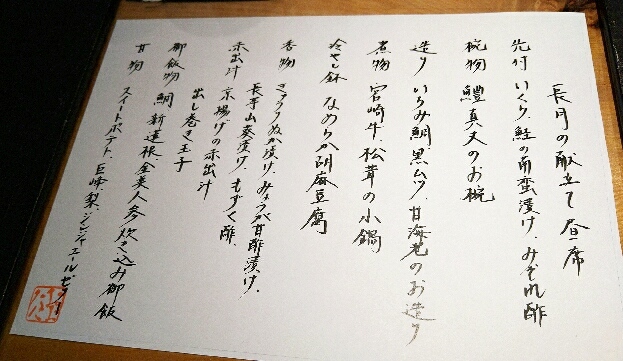 長月の献立て 昼一席
先付 いくり、鮭の南蛮漬け、みぞれ酢
椀物 鱧真丈のお椀
造り いらみ鯛、黒ムツ、甘海老のお造り
煮物 宮崎牛、松茸の小鍋
冷やし鉢 なめらか胡麻豆腐
香物 きゅうりぬか漬け、みょうが甘酢漬け、
長芋山葵漬け、もずく酢、
出し巻き玉子
赤出汁 京揚げの赤出汁
御飯物 鯛、新蓮根、金美人参炊き込み御飯
甘物 スイートポテト、巨峰、梨、ジンジャエールゼリー